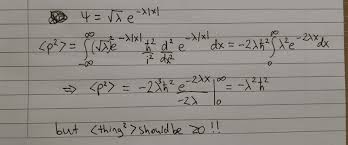 Ψ = √λ e^{-λ|x|}
⟨p²⟩ = ∫_{-∞}^{∞} (√λ)² e^{-λ|x|} ħ²/i² d²/dx² e^{-λ|x|} dx = -2λħ² ∫_0^∞ λ² e^{-2λx} dx
⇒ ⟨p²⟩ = -2λ³ħ² e^{-2λx}/-2λ |_0^∞ = -λ²ħ²
but ⟨thing²⟩ should be ≥0!!